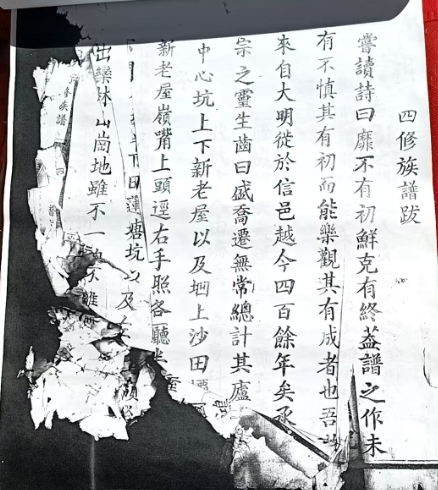 四修族譜跋
嘗讀詩曰靡不有初鮮克有終葢譜之作未
有不慎其有初而能樂觀其有成者也吾
來自大明從於信邑越今四百餘年矣承
宗之靈生齒曰盛喬遷無常總計其廬
中心坑上下新老屋以及坳上沙田
新老屋嶺嘴上頭逕右手照各聽
下田蓮塘坑 及
出欒林山崗地雖不一
族譜